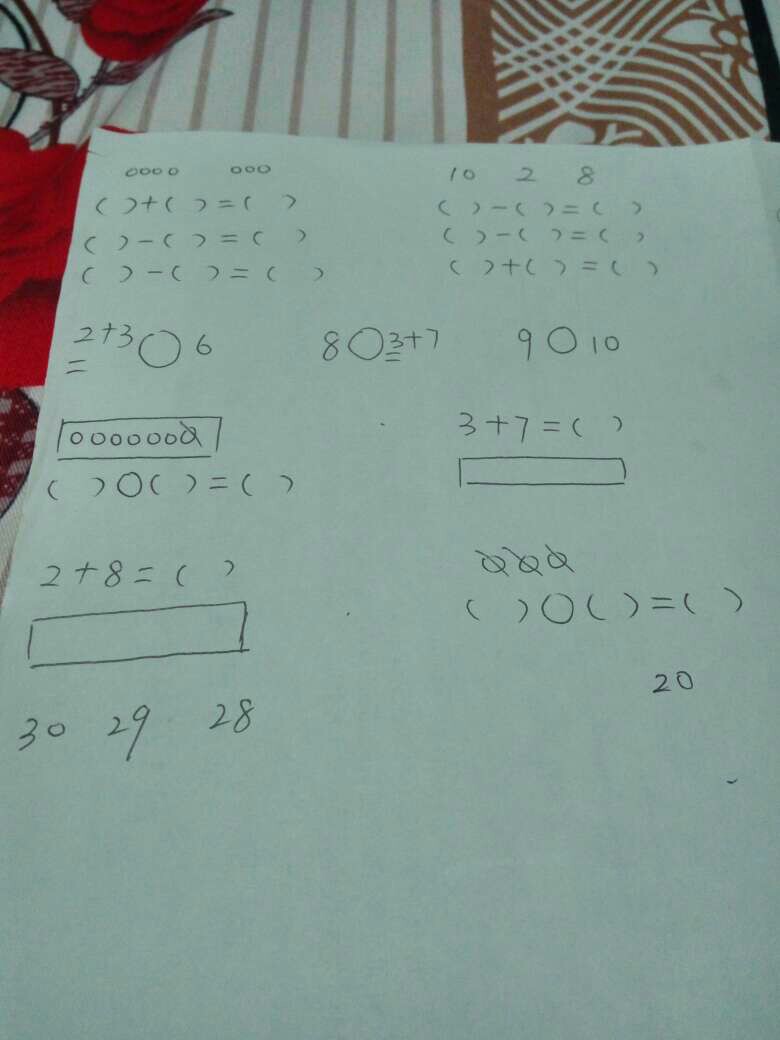 oooo ooo 10 2 8
( )+( )=( ) ( )-( )=( )
( )-( )=( ) ( )-( )=( )
( )-( )=( ) ( )+( )=( )
2+3○6 8○3+7 9○10
=
ooooooo 3+7=( )
( )○( )=( )
2+8=( ) ooo
( )○( )=( )
20
30 29 28